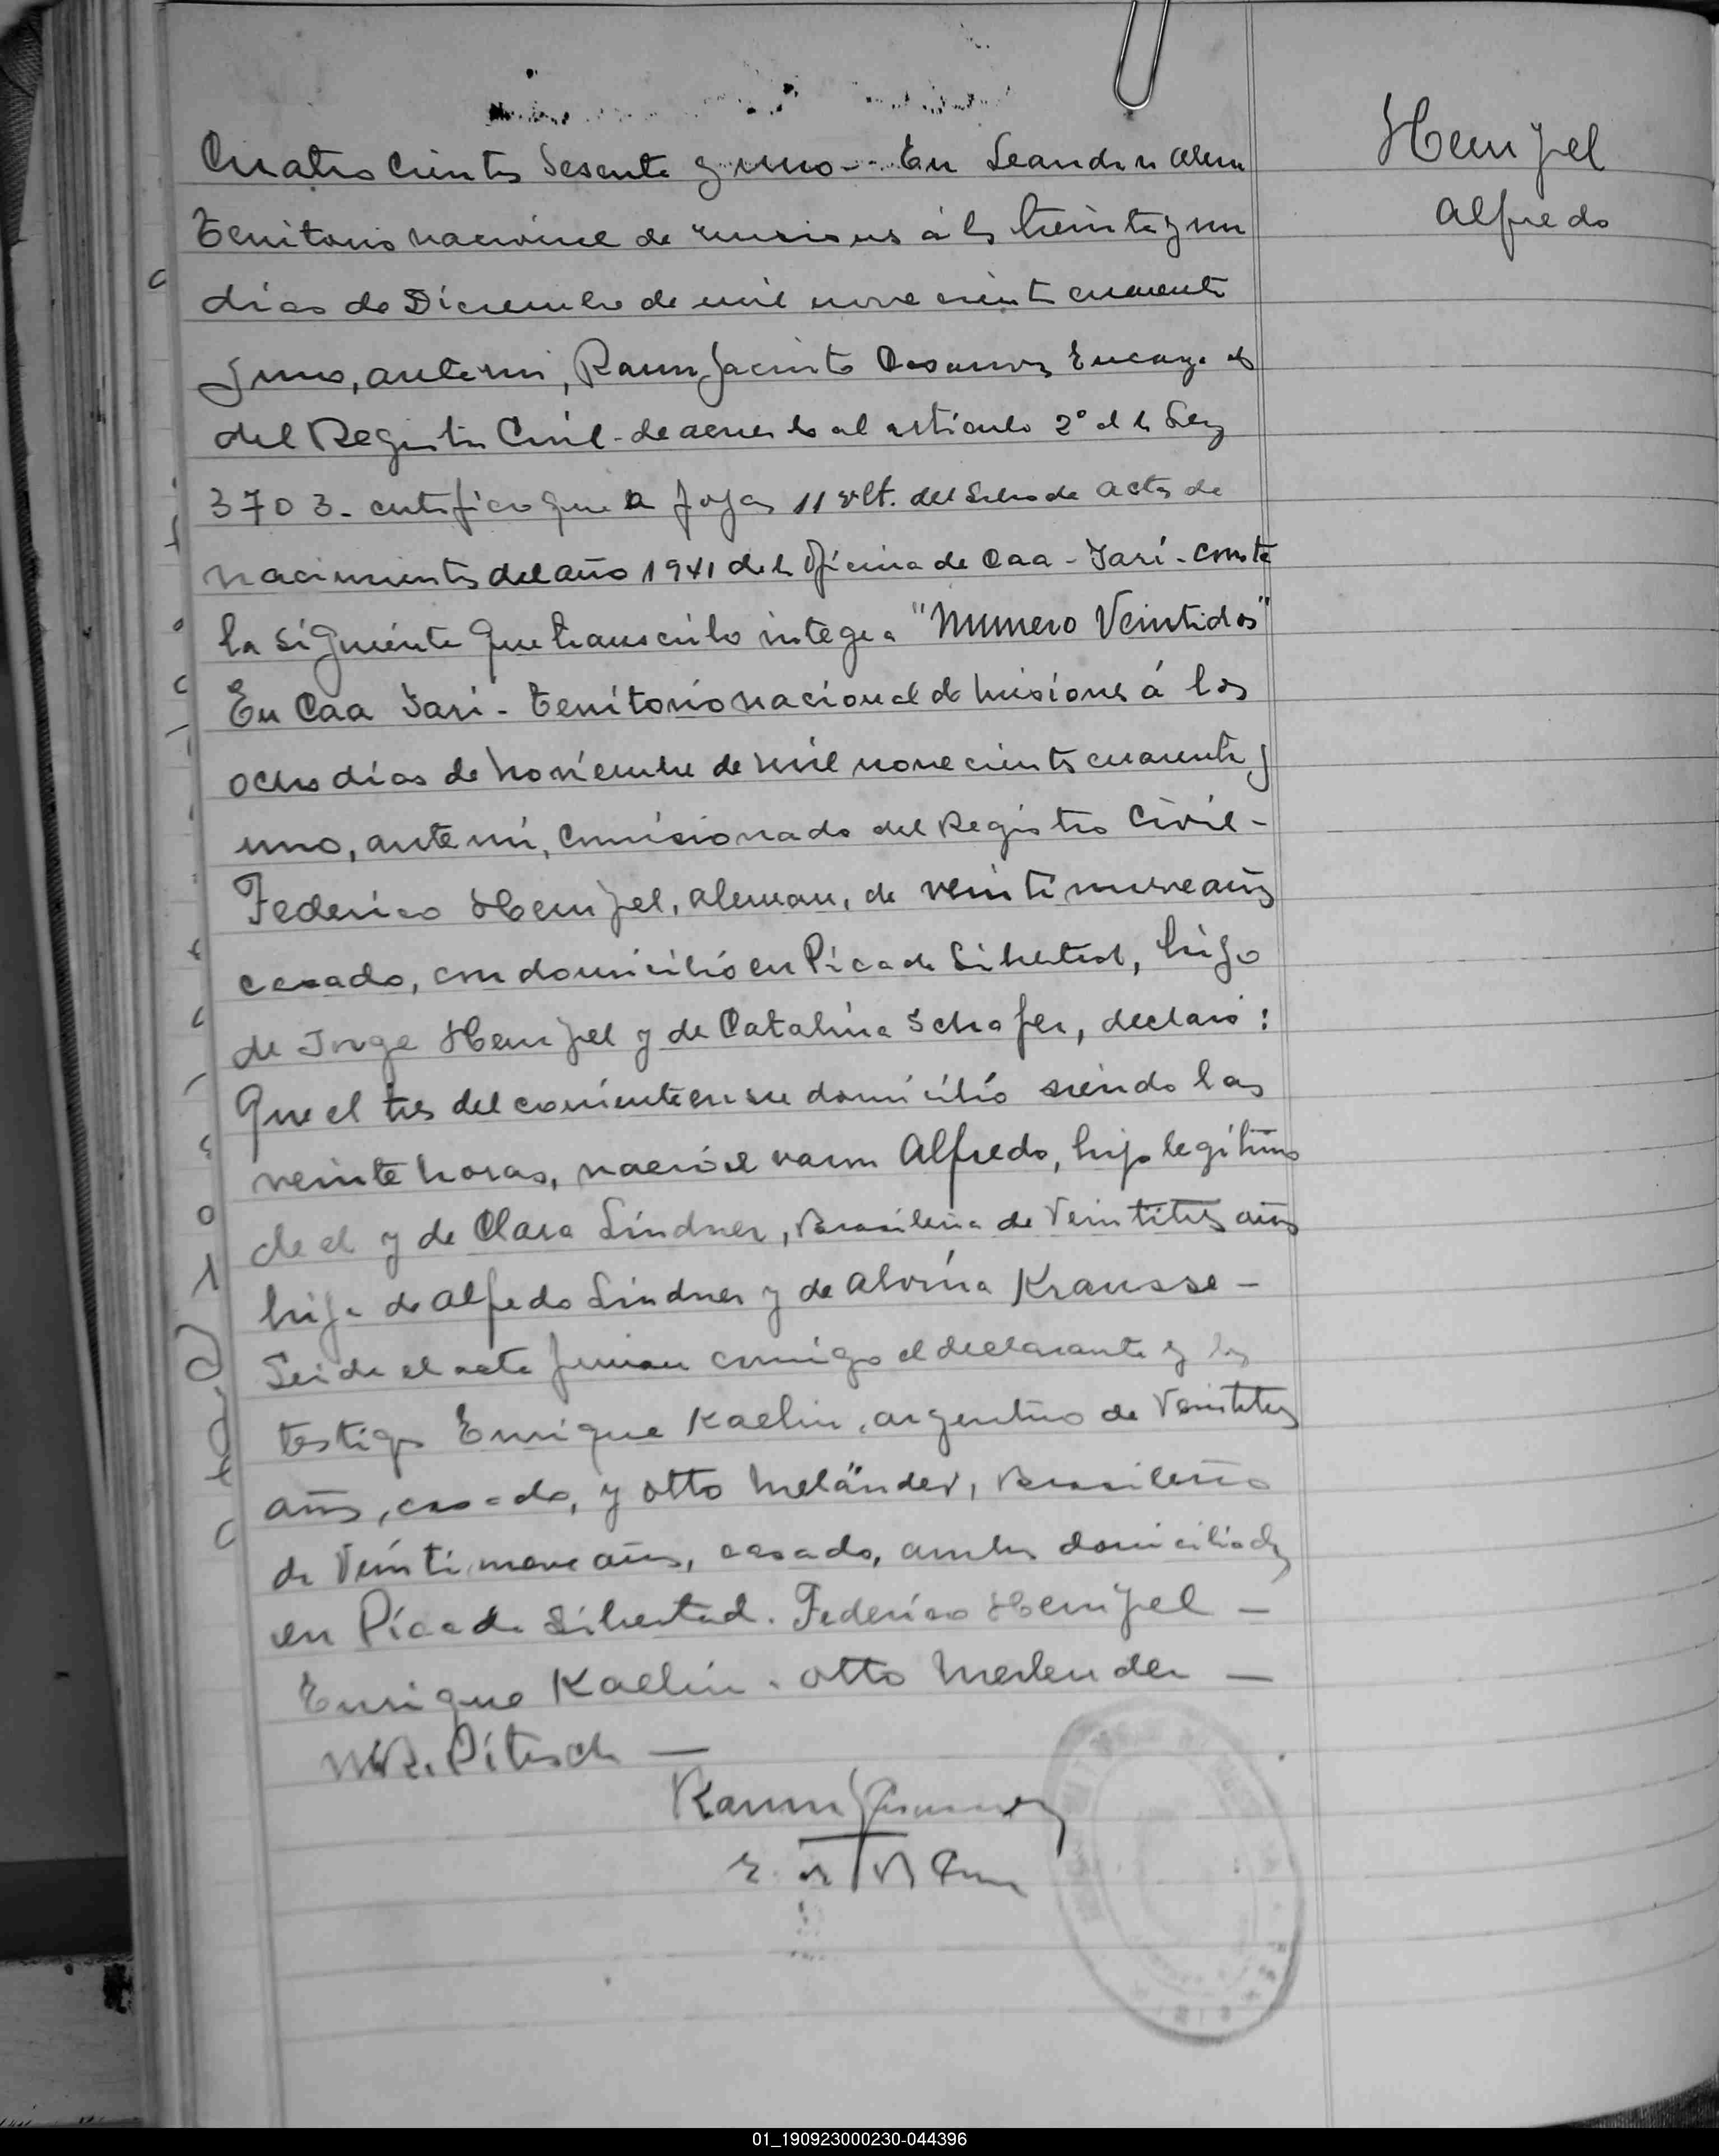 Hempel
Alfredo
Cuatrocientos Sesenta y uno - En Leandro n Alem
Territorio nacional de misiones á los treinta y un
dias de Diciembre de mil novecientos cuarenta
y uno, ante mi, Ramon Jacinto Casanova Encargado
del Registro Civil - de acuerdo al articulo 2° de la Ley
3703 - certifico que a fojas 11 vlt. del Libro de actas de
nacimientos del año 1941 de la Oficina de Caa - Yari - consta
la siguiente que transcribo integra "Numero Veintidos"
En Caa Yari - territorio nacional de misiones á los
ocho dias de noviembre de mil novecientos cuarenta y
uno, ante mi, Comisionado del Registro Civil -
Federico Hempel, aleman, de veintinueve años
casado, con domicilio en Picada Libertad, hijo
de Jorge Hempel y de Catalina Schafer, declaró :
Que el tres del corriente en su domicilio siendo las
veinte horas, nació el varon Alfredo, hijo legitimo
de el y de Clara Lindner, Brasileña de Veintitres años
hija de Alfredo Lindner y de Alvina Krausse -
Leida el acta firman conmigo el declarante y los
testigos Enrique Kaelin, argentino de Veintitres
años, casado, y otto Meländer, Brasileño
de Veintinueve años, casado, ambos domiciliados
en Picada Libertad. Federico Hempel -
Enrique Kaelin. otto Merlender -
Pitsch -
01_190923000230-044396